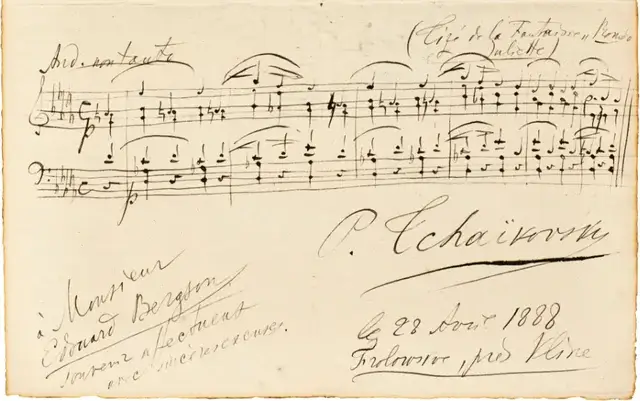 And. non tanto
(Tiré de la Fantaisie "Roméo
Juliette)
p
p
P. Tchaïkovsky
à Monsieur
Edouard Bergson.
souvenir affectueux
avec
le 28 Avril 1888
Frolowskoe, près Kline